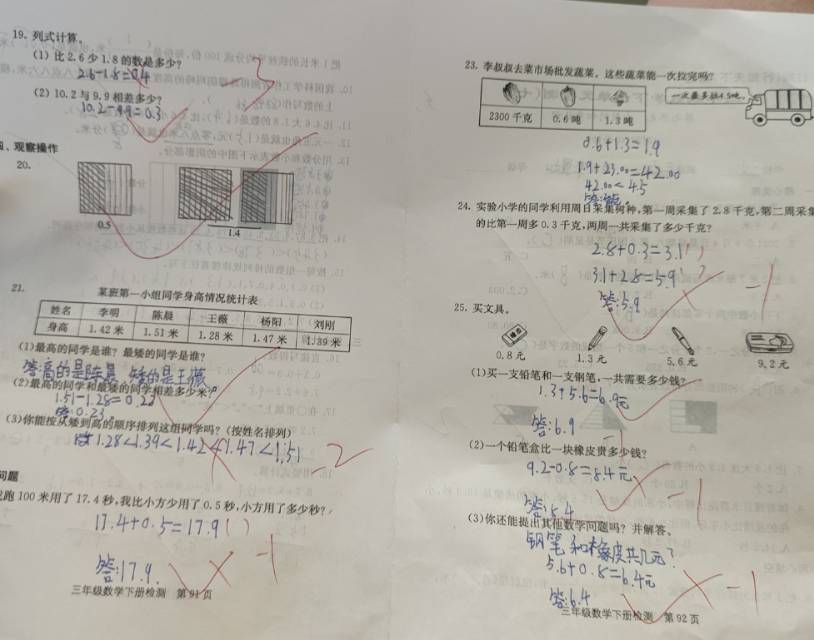 19. 列式计算。
(1) 比 2.6 少 1.8 的数是多少?
2.6-1.8=0.4
3
(2) 10.2 与 9.9 相差多少?
10.2-9.9=0.3
、观察操作
20.
0.5
1.4
21.
某班第一小组同学身高情况统计表
姓名 李明 陈晨 王薇 杨阳 刘刚
身高 1.42 米 1.51 米 1.28 米 1.47 米 1.39 米
(1)最高的同学是谁? 最矮的同学是谁?
答:高的是陈晨 矮的是王薇
(2)最高的同学和最矮的同学相差多少米?
1.51-1.28=0.23
答:0.23。
(3)你能按从矮到高的顺序排列这组同学吗? (按姓名排列)
答1.28<1.39<1.42<1.47<1.51
-2
问题
跑 100 米用了 17.4 秒,我比小方少用了 0.5 秒,小方用了多少秒?
17.4+0.5=17.9( )
答:17.9.
-1
三年级数学下册检测 第 91 页
23. 李叔叔去菜市场批发蔬菜。这些蔬菜能一次拉完吗?
一次最多拉4.5吨。
2300 千克 0.6 吨 1.3 吨
0.6+1.3=1.9
1.9+23.00=42.00
42.00<4.5
24. 实验小学的同学利用周日采集树种,第一周采集了 2.8 千克,第二周采集
的比第一周多 0.3 千克,两周一共采集了多少千克?
2.8+0.3=3.1( )
3.1+2.8=5.9( )
答:5.9
-1
25. 买文具。
0.8 元 1.3 元 5.6 元 9.2 元
(1)买一支铅笔和一支钢笔,一共需要多少钱?
1.3+5.6=6.9元
答:6.9
-1
(2)一个铅笔盒比一块橡皮贵多少钱?
9.2-0.8=8.4元
答:8.4
-1
(3)你还能提出其他数学问题吗? 并解答。
钢笔和橡皮共几元?
5.6+0.8=6.4元
答:6.4
-1
三年级数学下册检测 第 92 页